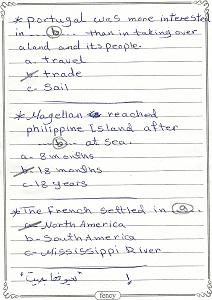 * Portugal was more interested
in ...... b ...... than in taking over
a land and its people.
a. travel
b. trade
c. Sail
* Magellan reached
philippine Island after
...... b ...... at sea.
a. 8 months
b. 18 months
c. 18 years
* The French settled in a.
a. North America
b. South America
c. Mississippi River
fency